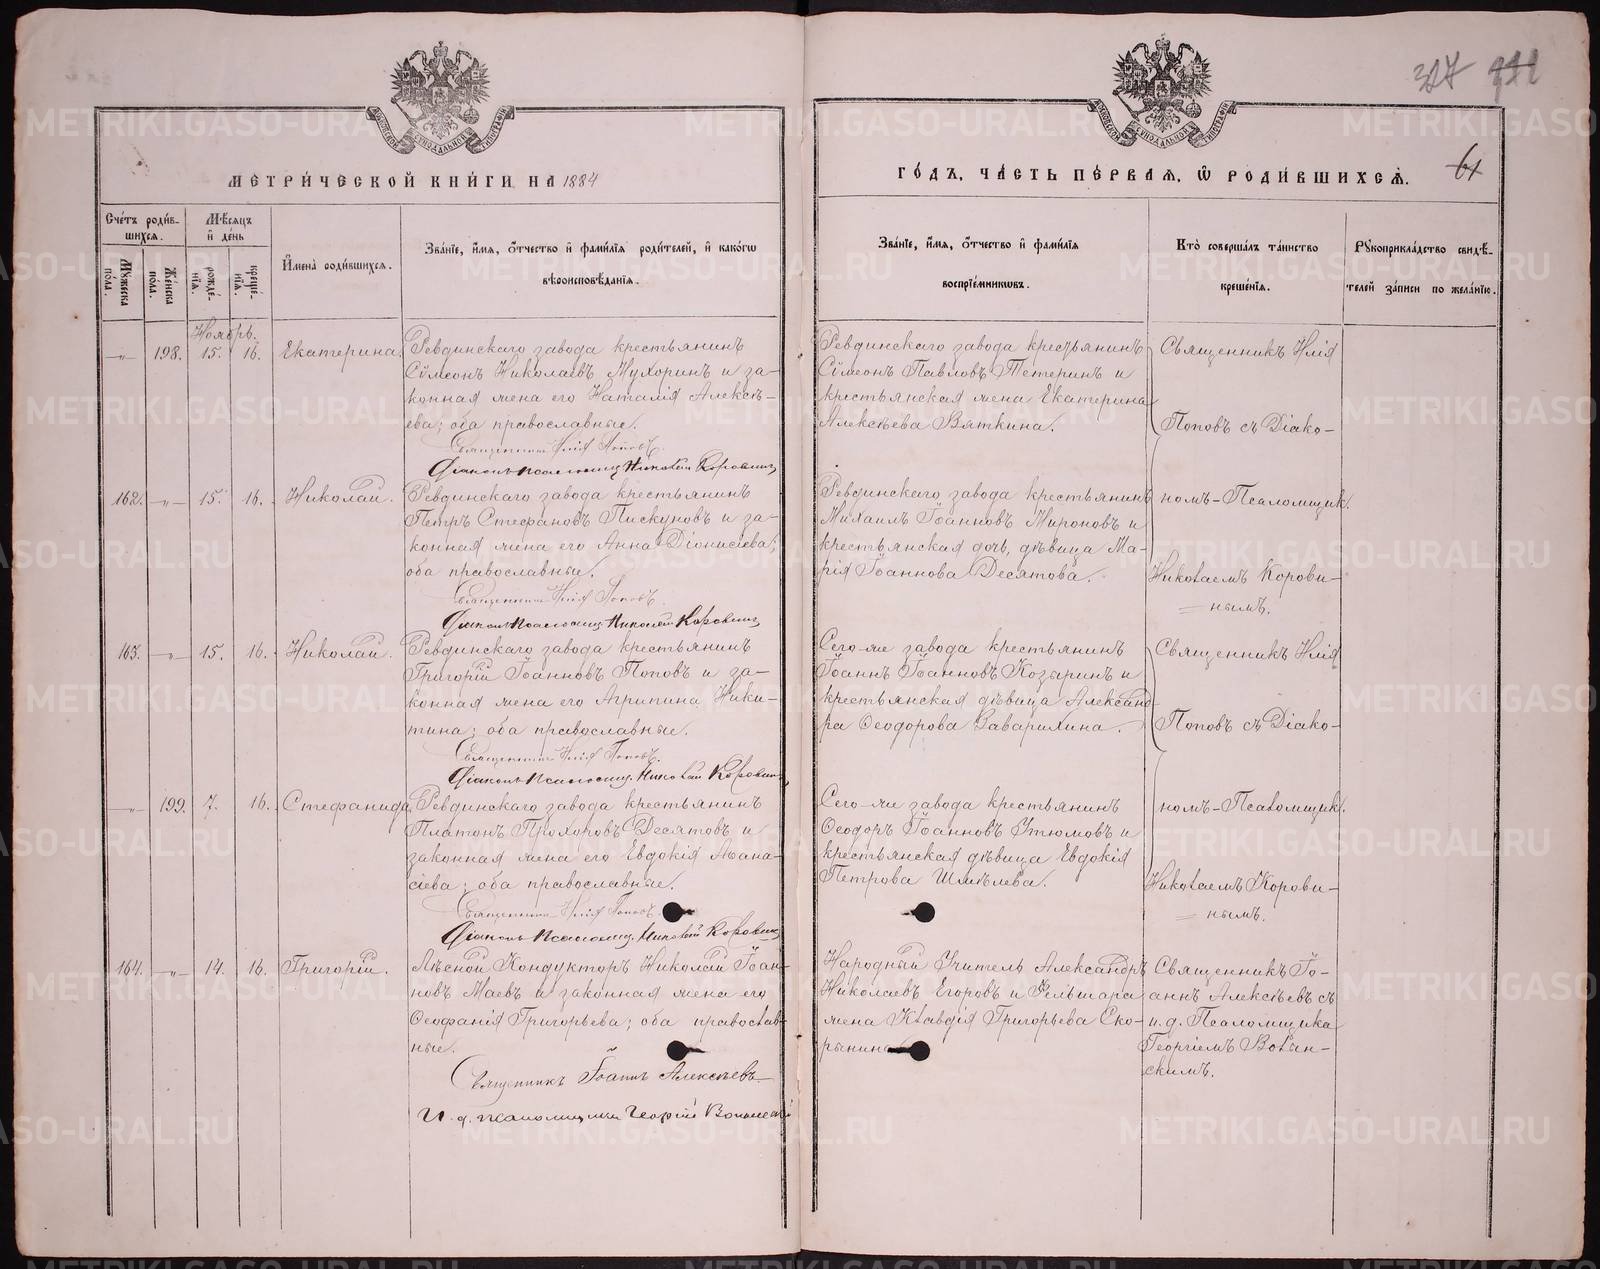 327
61
МОСКОВСКОЙ СѴНОДАЛЬНОЙ ТИПОГРАФІИ
МОСКОВСКОЙ СѴНОДАЛЬНОЙ ТИПОГРАФІИ
МЕТРИ́ЧЕСКОЙ КНИ́ГИ НА 1884
ГО́ДЪ, ЧА́СТЬ ПЕ́РВАЯ, Ѡ РОДИ́ВШИХСЯ.
Сче́тъ роди́в-
шихся.
Мѣ́сяцъ
и де́нь
Му́жеска пола.
Же́нска пола.
рожде́-
нія.
креще́-
нія.
И҆мена̀ роди́вшихся.
Зва́нїе, и҆́мя, ѻ҆́тчество и҆ фами́лїя роди́телей, и҆ како́гѡ
вѣроисповѣ́данїя.
Зва́нїе, и҆́мя, ѻ҆́тчество и҆ фами́лїя
воспрїе́мникѡвъ.
Кто̀ соверша́лъ та́инство
креще́нїя.
Рꙋкоприкла́дство свидѣ́-
телей за́писи по жела́нїю.
Ноябрь.
—„— 198. 15. 16. Екатерина.
Ревдинскаго завода крестьянинъ
Сѵмеонъ Николаевъ Мухоринъ и за-
конная жена его Наталія Алексѣ-
ева; оба православные.
Священникъ Илія Поповъ.
Діаконъ-псаломщ. Николай Коровинъ
Ревдинскаго завода крестьянинъ
Сѵмеонъ Павловъ Тетеринъ и
крестьянская жена Екатерина
Алексѣева Вяткина.
Священникъ Илія
Поповъ съ Діако-
162. —„— 15. 16. Николай.
Ревдинскаго завода крестьянинъ
Петръ Стефановъ Пискуновъ и за-
конная жена его Анна Діонисіева;
оба православные.
Священникъ Илія Поповъ.
Діаконъ-псаломщ. Николай Коровинъ
Ревдинскаго завода крестьянинъ
Михаилъ Іоанновъ Мироновъ и
крестьянская дочь, дѣвица Ма-
рія Іоаннова Десятова.
номъ-Псаломщик.
Николаемъ Корови-
= нымъ.
163. —„— 15. 16. Николай.
Ревдинскаго завода крестьянинъ
Григорій Іоанновъ Поповъ и за-
конная жена его Агрипина Ники-
тина; оба православные.
Священникъ Илія Поповъ.
Діаконъ-псаломщ. Николай Коровинъ
Сего-же завода крестьянинъ
Іоаннъ Іоанновъ Козыринъ и
крестьянская дѣвица Александ-
ра Ѳеодорова Заварихина.
Священникъ Илія
Поповъ съ Діако-
—„— 199. 7. 16. Стефанида.
Ревдинскаго завода крестьянинъ
Платонъ Прохоровъ Десятовъ и
законная жена его Евдокія Аѳана-
сіева; оба православные.
Священникъ Илія Поповъ.
Діаконъ-псаломщ. Николай Коровинъ
Сего-же завода крестьянинъ
Ѳеодоръ Іоанновъ Утюмовъ и
крестьянская дѣвица Евдокія
Петрова Шмѣлева.
номъ-Псаломщик.
Николаемъ Корови-
= нымъ.
164. —„— 14. 16. Григорій.
Лѣсной Кондукторъ Николай Іоан-
новъ Маевъ и законная жена его
Ѳеофанія Григорьева; оба православ-
ные.
Священникъ Іоаннъ Алексѣевъ
И. д. псаломщика Георгій Волынскій
Народный Учитель Александръ
Николаевъ Егоровъ и Фельдшера
жена Клавдія Григорьева Ско-
рынина
Священникъ Іо-
аннъ Алексѣевъ съ
и. д. Псаломщика
Георгіемъ Волын-
скимъ.
METRIKI.GASO-URAL.RU